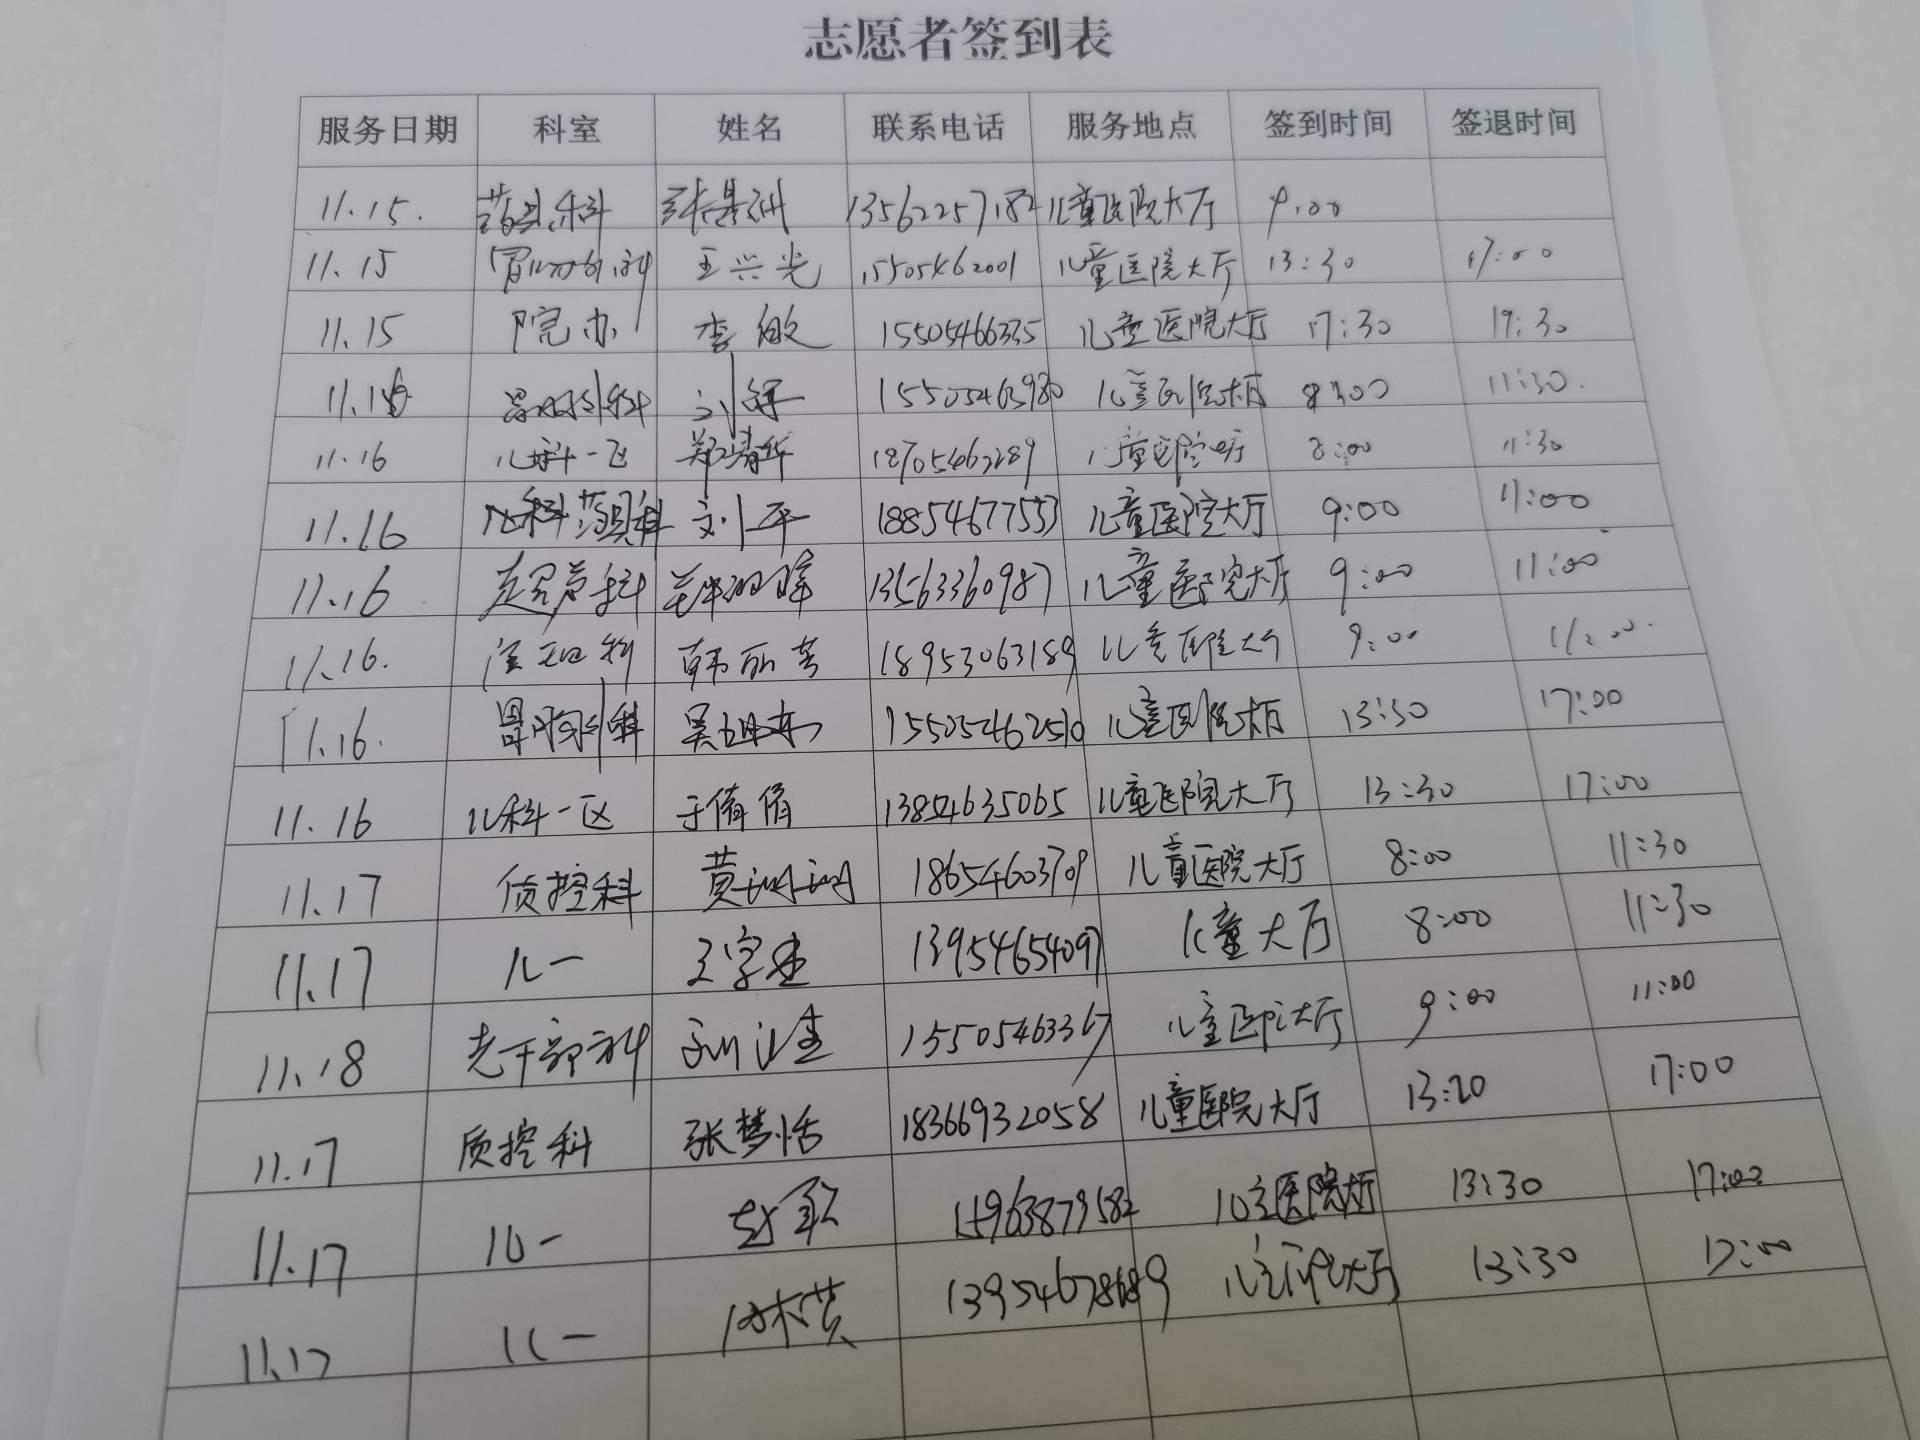 志愿者签到表
服务日期 科室 姓名 联系电话 服务地点 签到时间 签退时间
11.15. 药具科 13562257182 儿童医院大厅 9:00
11.15 王兴光 15505462001 儿童医院大厅 13:30 17:00
11.15 院办 李敏 15505466335 儿童医院大厅 17:30 19:30
11.16 胃肠外科 刘 15505463980 儿童医院大厅 8:00 11:30.
11.16 儿科一区 郑清华 18705462289 儿童医院大厅 8:00 11:30
11.16 药具科 刘平 18854677553 儿童医院大厅 9:00 11:00
11.16 超声科 13563360987 儿童医院大厅 9:00 11:00
11.16. 病理科 韩丽 18953063189 儿童医院大厅 9:00 11:00
11.16. 胃肠外科 吴 15505462510 儿童医院大厅 13:30 17:00
11.16 儿科一区 于倩倩 13854635065 儿童医院大厅 13:30 17:00
11.17 质控科 黄 18654603709 儿童医院大厅 8:00 11:30
11.17 儿一 王 13954654097 儿童大厅 8:00 11:30
11.18 老干部科 15505463367 儿童医院大厅 9:00 11:00
11.17 质控科 张梦恬 18366932058 儿童医院大厅 13:20 17:00
11.17 儿一 赵 15963879582 儿童医院大厅 13:30 17:00
11.17 儿一 13954678689 儿童医院大厅 13:30 17:00